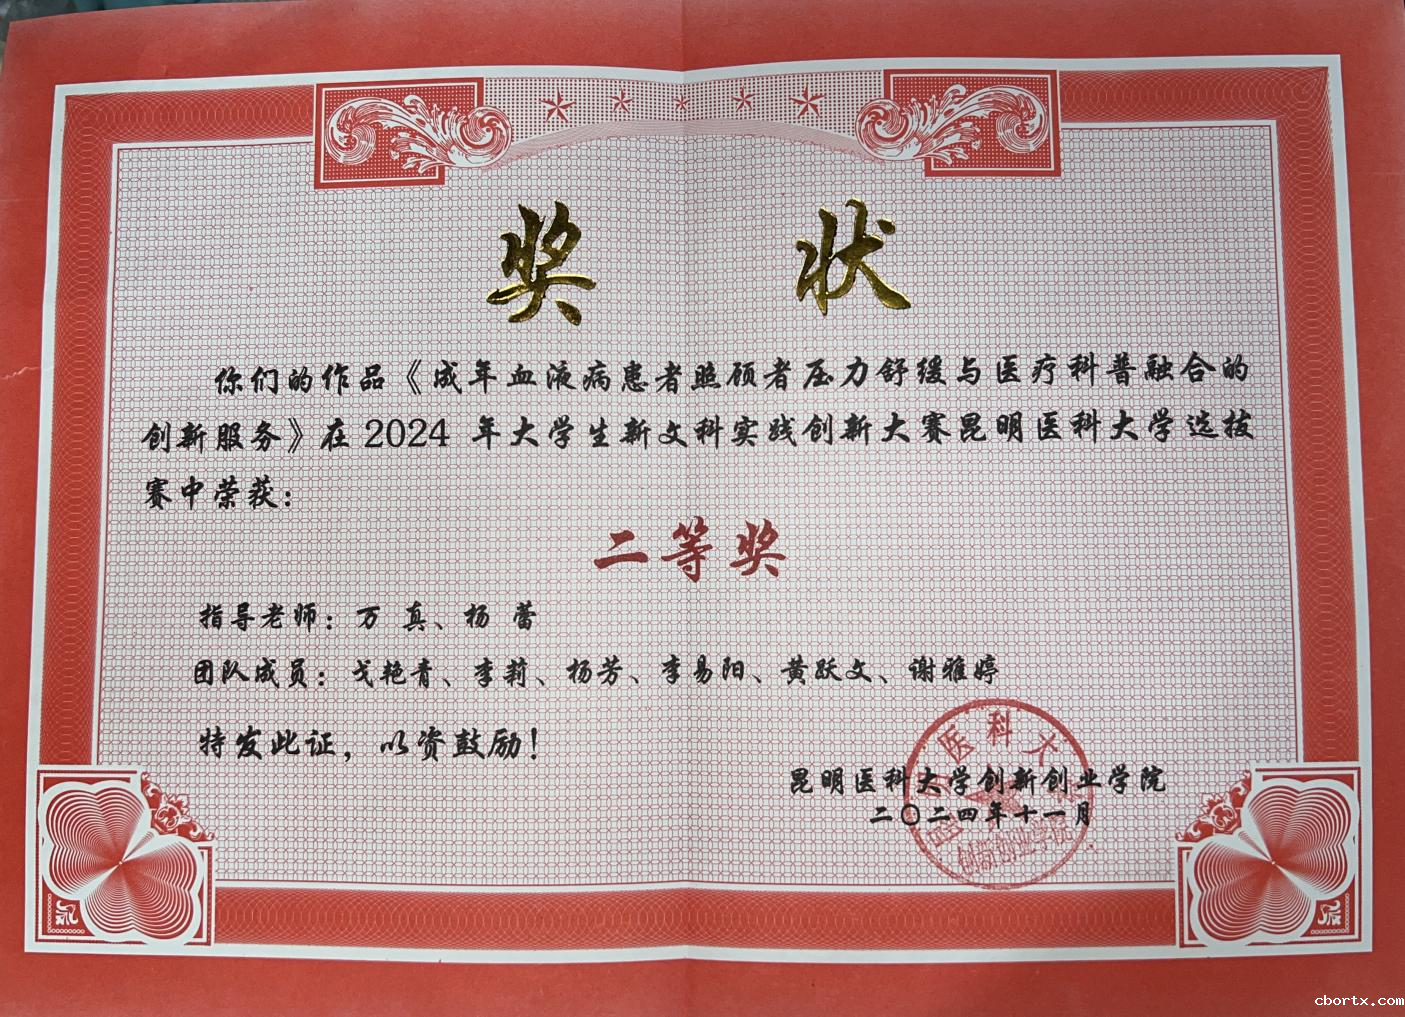 奖 状
你们的作品《成年血液病患者照顾者压力舒缓与医疗科普融合的
创新服务》在2024 年大学生新文科实践创新大赛昆明医科大学选拔
赛中荣获：
二等奖
指导老师：万 真、杨 蕾
团队成员：戈艳青、李莉、杨芳、李易阳、黄跃文、谢雅婷
特发此证，以资鼓励！
昆明医科大学创新创业学院
二〇二四年十一月
昆明医科大学
创新创业学院
cbortx.com